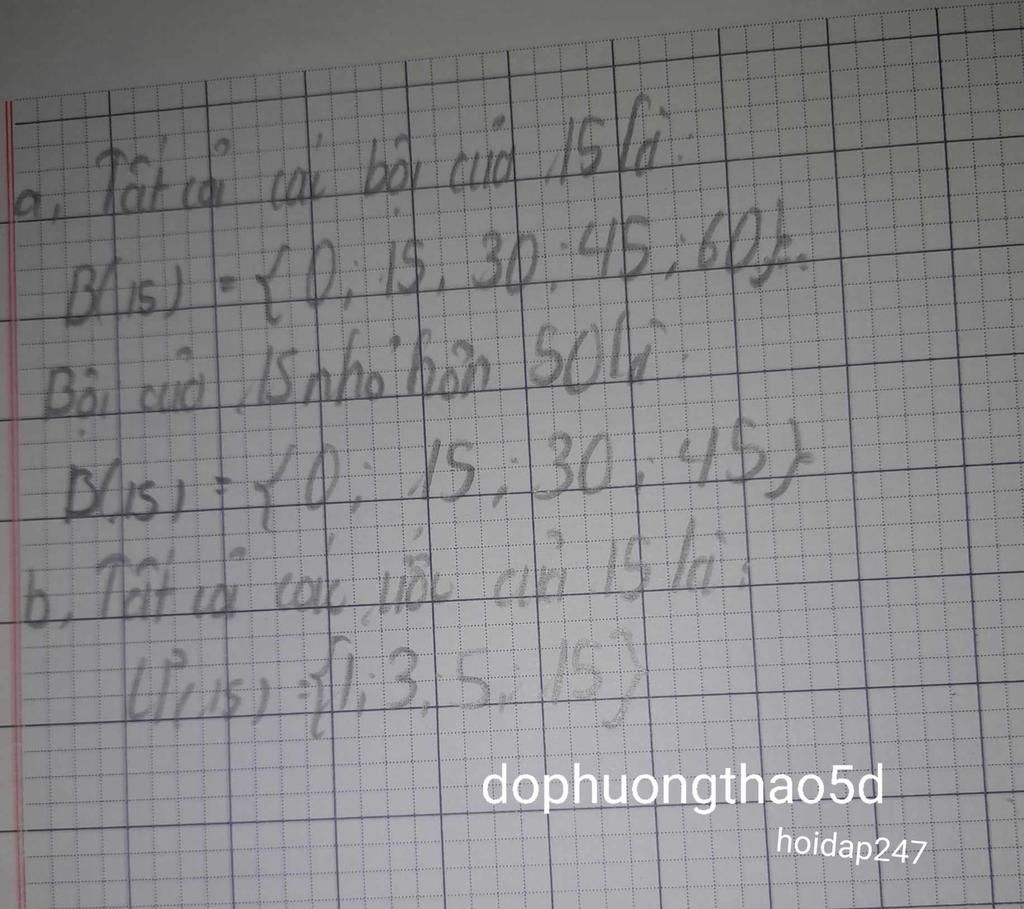 a, Tất cả các bội của 15 là:
B(15) = {0; 15; 30; 45; 60}.
Bội của 15 nhỏ hơn 50 là:
B(15) = {0; 15; 30; 45}
b, Tất cả các ước của 15 là:
Ư(15) = {1; 3; 5; 15}
dophuongthao5d
hoidap247